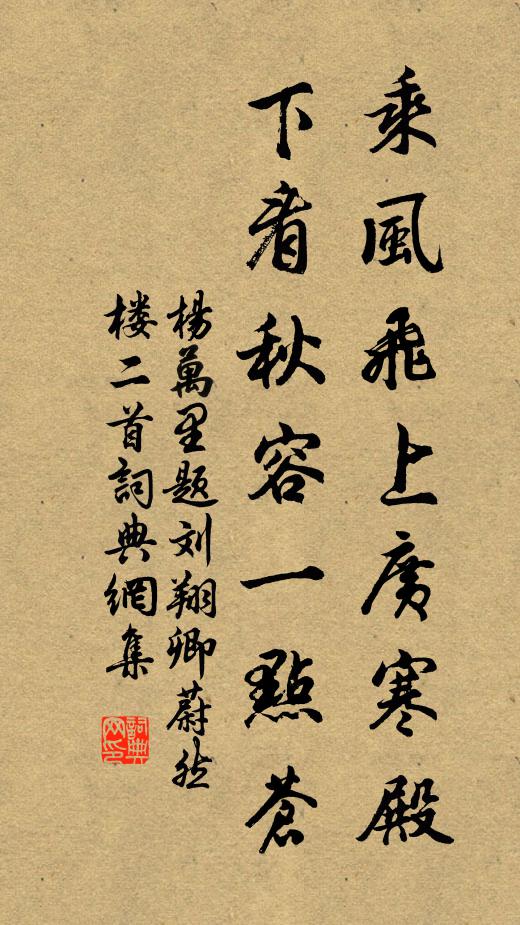 乘風飛上廣寒殿
下看秋容一點蒼
楊萬里題刘翔卿蔚然
楼二首詞典網集
詞典網印